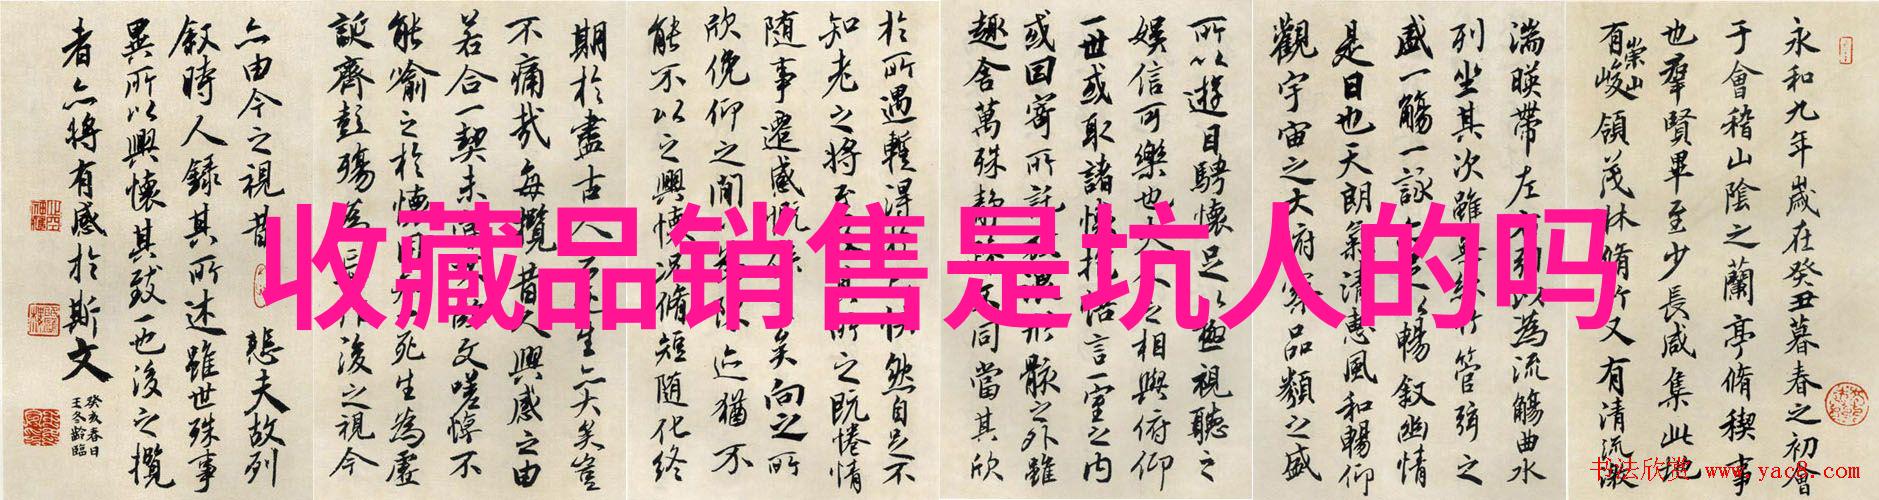 收藏品销售是坑人的吗
永和九年歲在癸丑暮春之初會
于會稽山陰之蘭亭脩稧事
也羣賢畢至少長咸集此地
有崇山峻領茂林脩竹又有清流激
湍暎帶左右引以為流觴曲水
列坐其次雖無絲竹管弦之
盛一觴一詠足以暢敘幽情
是日也天朗氣清惠風和暢仰
觀宇宙之大府察品類之盛
所以遊目騁懷足以極視聽之
娛信可樂也夫人之相與俯仰
一世或取諸懷抱悟言一室之內
或因寄所託放浪形骸之外雖
趣舍萬殊靜躁不同當其欣
於所遇暫得於己快然自足不
知老之將至及其所之既惓情
随事遷感慨係之矣向之所
欣俛仰之閒以為陳迹猶不
能不以之興懷況脩短随化終
期於盡古人云死生亦大矣豈
不痛哉每攬昔人興感之由
若合一契未嘗不臨文嗟悼不
能喻之於懷固知一死生為虛
誕齊彭殤為妄作後之視今
亦由今之視昔悲夫故列
敘時人錄其所述雖世殊事
異所以興懷其致一也後之攬
者亦將有感於斯文
癸亥春日
王冬齡臨
书法欣赏 www.yac8.com